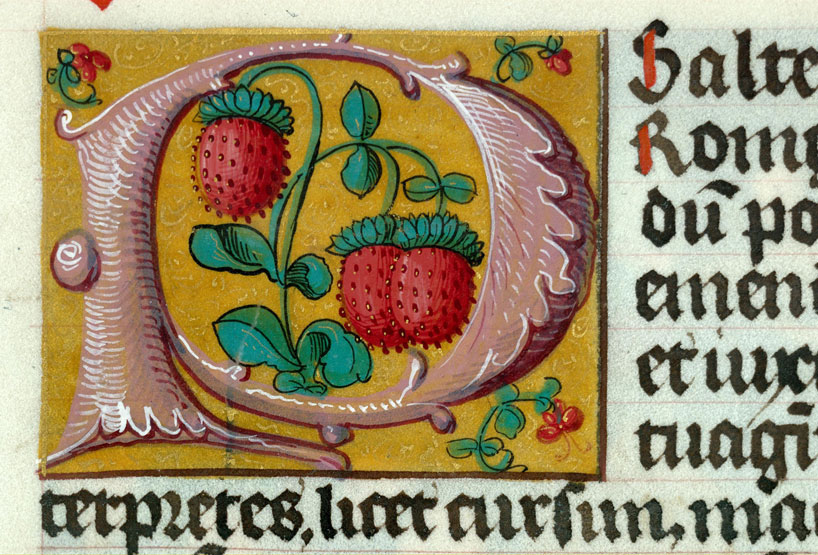 P salte
Rom
dū po
emen
et iux
tuagī
terpretes, licet cursim, ma